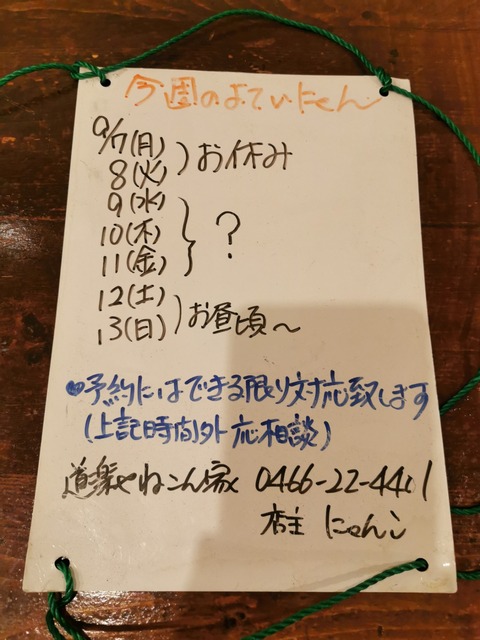 今週のよていにゃん
9/7(月)
8(火) ) お休み
9(水)
10(木) } ?
11(金)
12(土)
13(日) ) お昼頃〜
●予約にはできる限り対応致します
(上記時間外応相談)
道楽やねこん家 0466-22-4401
店主 にゃんこ